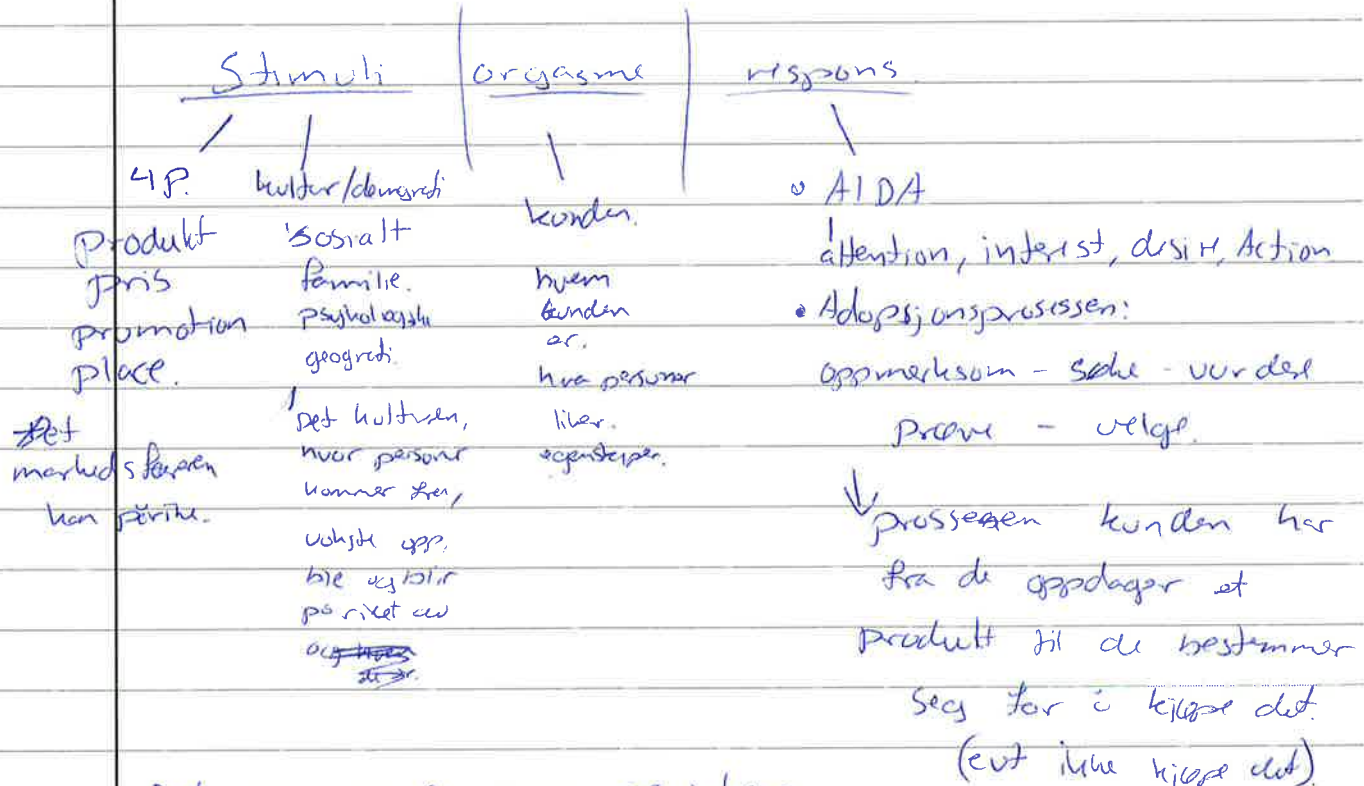 Stimuli
orgasme
respons.
4P.
Produkt
pris
promotion
place.
Det
markedsføreren
kan påvirke.
kultur/demografi
sosialt
familie.
psykologisk
geografi.
Det kulturen,
hvor personer
kommer fra,
vokste opp.
ble og blir
påvirket av
kunden.
hvem
kunden
er.
hva personer
liker.
egenskaper.
• AIDA
attention, interest, desire, Action
• Adopsjonsprosessen:
oppmerksom - søke - vurdere
prøve - velge.
prossesen kunden har
fra de oppdager et
produkt til de bestemmer
seg for å kjøpe det.
(evt ikke kjøpe det)